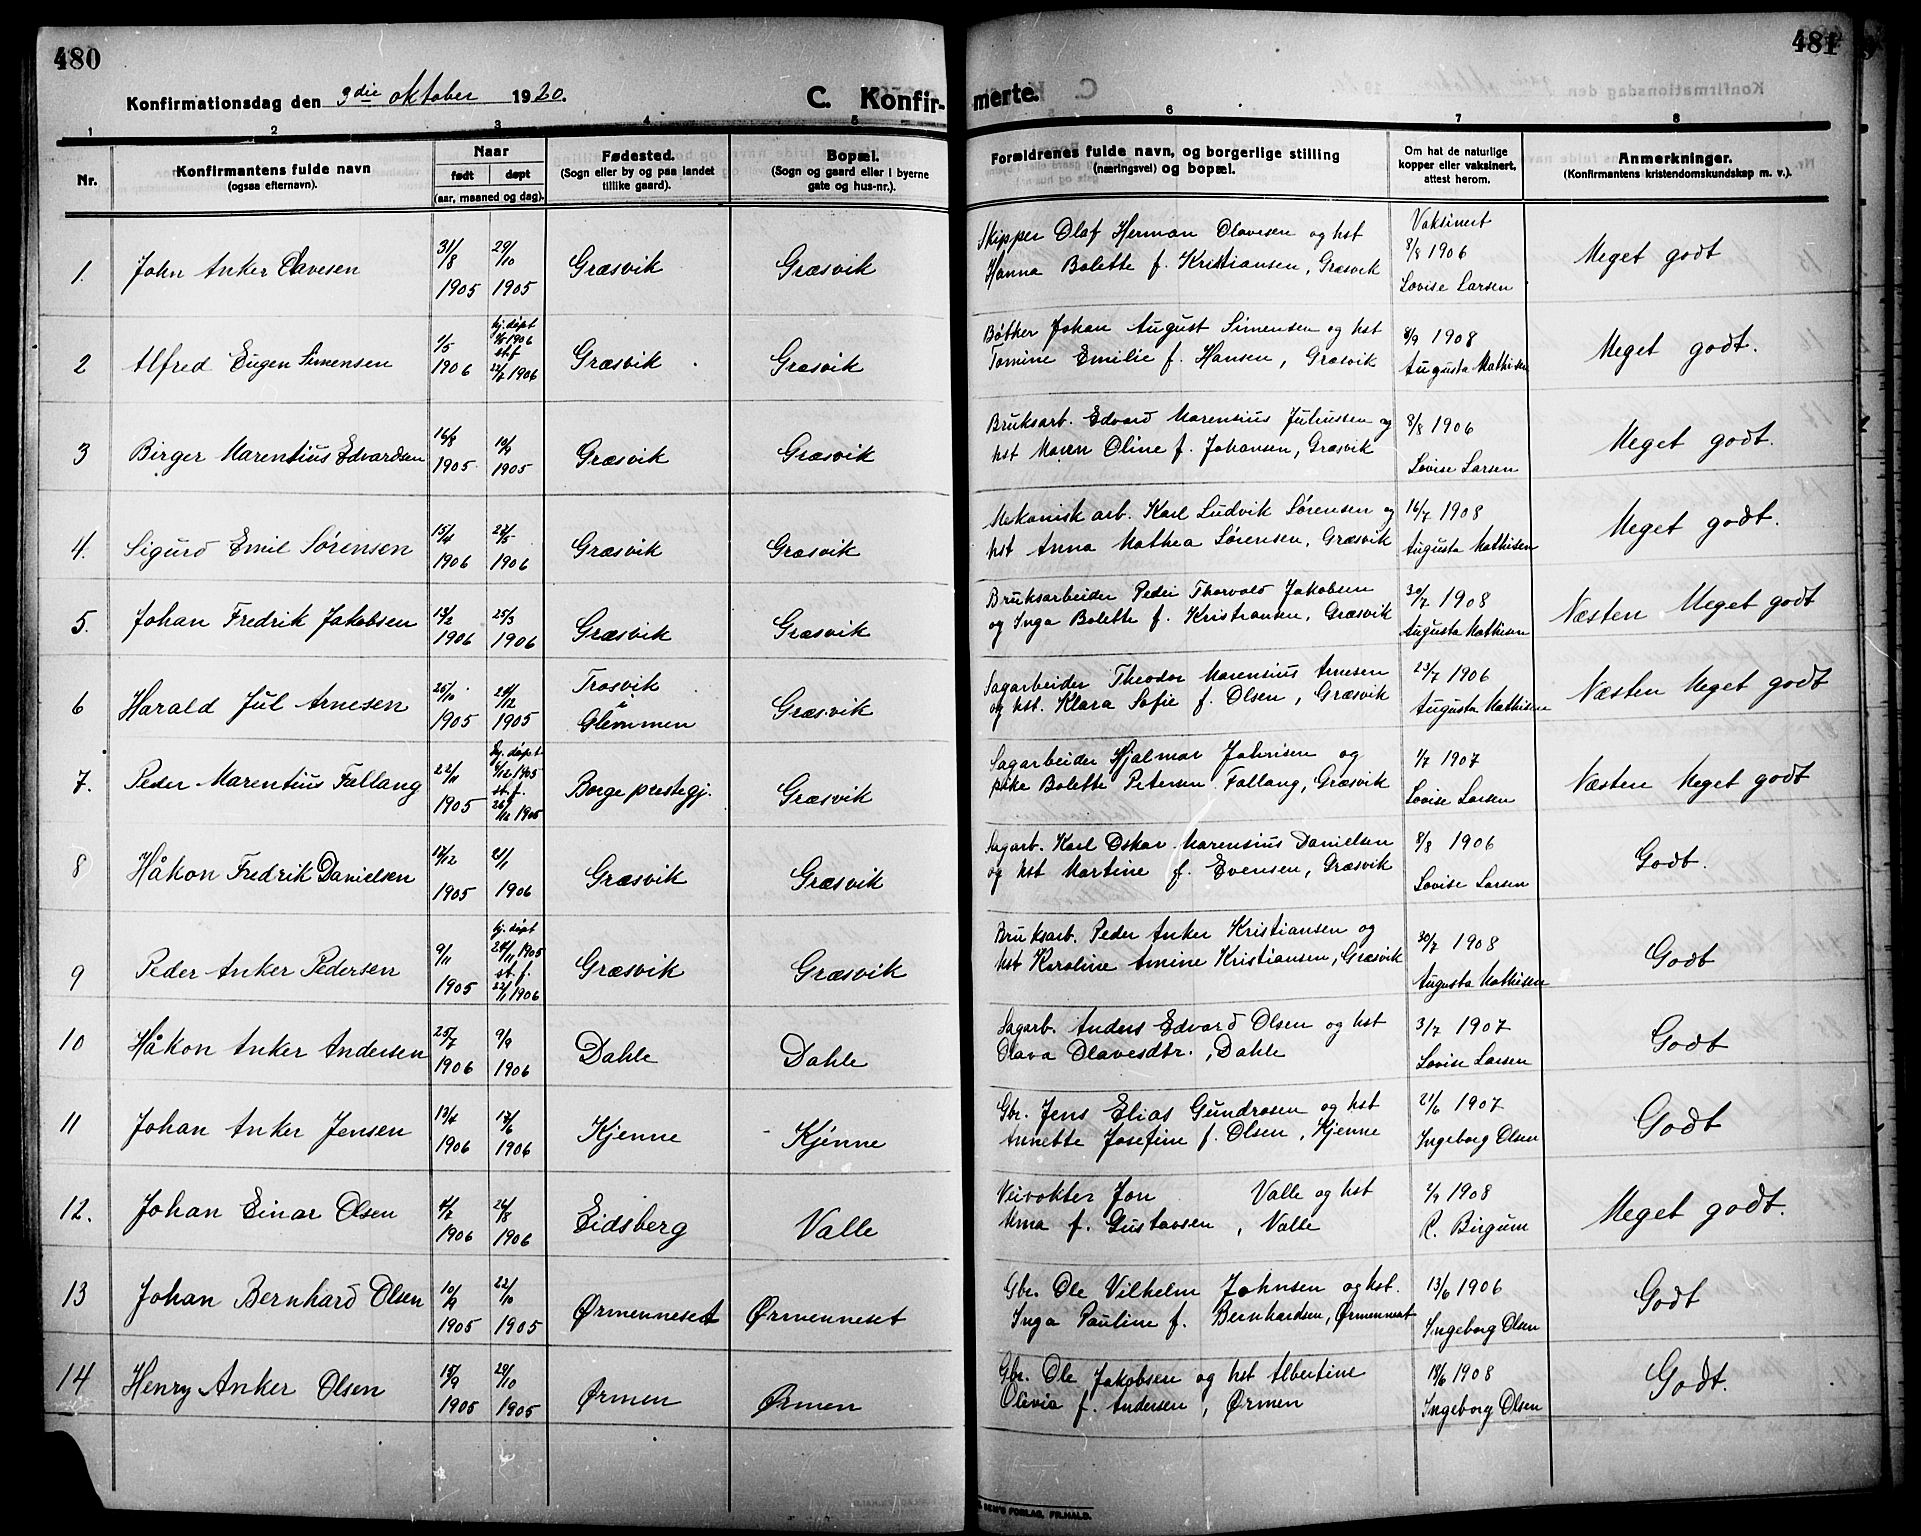 480
481
Konfirmationsdag den 3die oktober 1920.
C. Konfirmerte.
1 2 3 4 5 6 7 8
Nr.
Konfirmantens fulde navn
(ogsaa efternavn).
Naar
født døpt
(aar, maaned og dag).
Fødested.
(Sogn eller by og paa landet
tillike gaard).
Bopæl.
(Sogn og gaard eller i byerne
gate og hus-nr.).
Forældrenes fulde navn, og borgerlige stilling
(næringsvei) og bopæl.
Om hat de naturlige
kopper eller vaksinert,
attest herom.
Anmerkninger.
(Konfirmantens kristendomskundskap m. v.).
1. John Anker Olavesen 31/8 1905 29/10 1905 Græsvik Græsvik
Skipper Olaf Herman Olavesen og hst
Hanna Bolette f. Kristiansen, Græsvik
Vaksinert
8/8 1906
Lovise Larsen
Meget godt
2 Alfred Eugen Simensen 1/5 1906 hj. døpt 1906 st.f. 22/7 1906 Græsvik Græsvik
Bøtker Johan August Simensen og hst
Tomine Emilie f. Hansen, Græsvik
8/9 1908
Augusta Mathisen
Meget godt.
3 Birger Marentius Edvardsen 16/8 1905 10/9 1905 Græsvik Græsvik
Bruksarb. Edvard Marensius Juliussen og
hst Maren Oline f. Johansen, Græsvik
8/8 1906
Lovise Larsen
Meget godt.
4. Sigurd Emil Sørensen 15/4 1906 24/5 1906 Græsvik Græsvik
Mekanisk arb. Karl Ludvik Sørensen og
hst Anna Mathea Sørensen, Græsvik
16/7 1908
Augusta Mathisen
Meget godt.
5. Johan Fredrik Jakobsen 13/2 1906 25/3 1906 Græsvik Græsvik
Bruksarbeider Peder Thorvald Jakobsen
og Inga Bolette f. Kristiansen, Græsvik
30/7 1908
Augusta Mathisen
Næsten Meget godt
6 Harald Jul Arnesen 25/10 1905 24/12 1905 Trosvik i Glemmen Græsvik
Sagarbeider Theodor Marensius Arnesen
og hst. Klara Sofie f. Olsen, Græsvik
23/7 1906
Augusta Mathisen
Næsten Meget godt
7. Peder Marentius Fallang 22/11 1905 hj. døpt 1905 st.f. 26/12 1905 Borge prestegj. Græsvik
Sagarbeider Hjalmar Johnsen og
pike Bolette Petersen Fallang, Græsvik
1/7 1907
Lovise Larsen
Næsten Meget godt
8 Håkon Fredrik Danielsen 12/12 1905 21/1 1906 Græsvik Græsvik
Sagarb. Karl Oskar Marensius Danielsen
og hst Martine f. Evensen, Græsvik
8/8 1906
Lovise Larsen
Godt.
9 Peder Anker Pedersen 9/11 1905 hj. døpt 24/11 1905 st.f. 22/1 1906 Græsvik Græsvik
Bruksarb. Peder Anker Kristiansen og
hst Karoline Amine Kristiansen, Græsvik
30/7 1908
Augusta Mathisen
Godt
10 Håkon Anker Andersen 25/7 1906 9/9 1906 Dahle Dahle
Sagarb. Anders Edvard Olsen og hst
Olava Olavesdtr., Dahle
3/7 1907
Lovise Larsen
Godt
11 Johan Anker Jensen 13/4 1906 17/6 1906 Kjenne Kjenne
Gbr. Jens Elias Gundrosen og hst
Annette Josefine f. Olsen, Kjenne
21/6 1907
Ingeborg Olsen
Godt
12. Johan Einar Olsen 4/7 1906 26/8 1906 Eidsberg Valle
Veivokter Jon Valle og hst
f. Gustavsen, Valle
2/9 1908
R. Birgum
Meget godt.
13 Johan Bernhard Olsen 10/9 1905 22/10 1905 Ørmenneset Ørmenneset
Gbr. Ole Vilhelm Johnsen og hst.
Inga Pauline f. Bernhardsen, Ørmenneset
13/6 1906
Ingeborg Olsen
Godt
14 Henry Anker Olsen 15/9 1905 29/10 1905 Ørmen Ørmen
Gbr. Ole Jakobsen og hst Albertine
Olivia f. Andersen, Ørmen
18/6 1908
Ingeborg Olsen
Godt.
SEM'S FORLAG, FR.HALD.